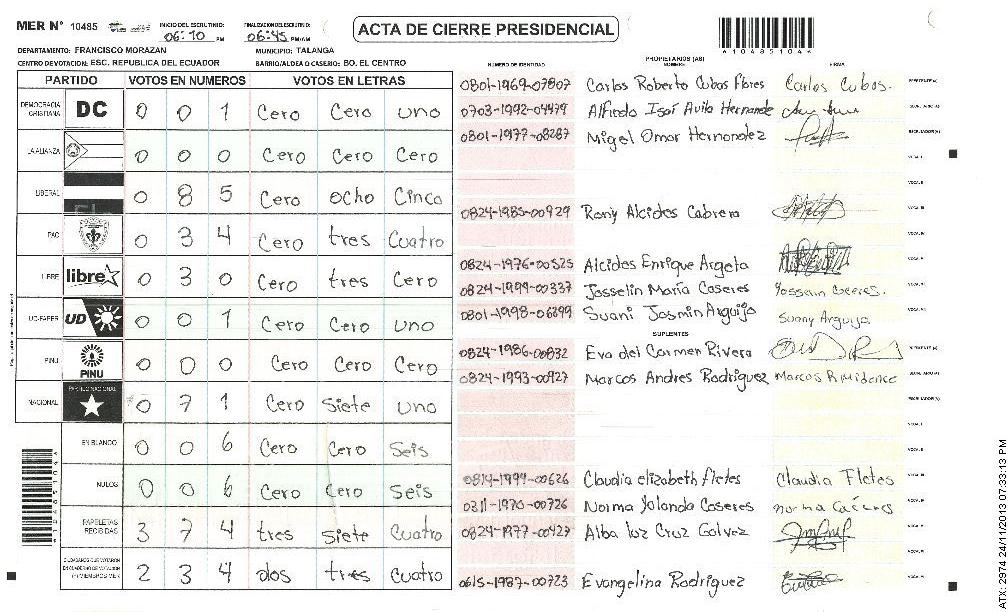 MER N° 10485
INICIO DEL ESCRUTINIO: 06:10 PM
FINALIZACION DEL ESCRUTINIO: 06:45 PM/AM
ACTA DE CIERRE PRESIDENCIAL
DEPARTAMENTO: FRANCISCO MORAZAN MUNICIPIO: TALANGA
CENTRO DE VOTACION: ESC. REPUBLICA DEL ECUADOR BARRIO/ALDEA O CASERIO: BO. EL CENTRO
*10485104*
PARTIDO VOTOS EN NUMEROS VOTOS EN LETRAS
DEMOCRACIA CRISTIANA DC 0 0 1 Cero Cero uno
LA ALIANZA 0 0 0 Cero Cero Cero
LIBERAL 0 8 5 Cero ocho Cinco
PAC 0 3 4 Cero tres Cuatro
LIBRE libre 0 3 0 Cero tres Cero
UD-FAPER UD 0 0 1 Cero Cero uno
PINU PINU 0 0 0 Cero Cero Cero
NACIONAL PARTIDO NACIONAL 0 7 1 Cero Siete uno
EN BLANCO 0 0 6 Cero Cero Seis
NULOS 0 0 6 Cero Cero Seis
PAPELETAS RECIBIDAS 3 7 4 tres Siete Cuatro
CIUDADANOS QUE VOTARON EN CUADERNO DE VOTACION (+) MIEMBROS MER 2 3 4 dos tres Cuatro
PROPIETARIOS (AS)
NUMERO DE IDENTIDAD NOMBRE FIRMA
0801-1969-07807 Carlos Roberto Cubas flores Carlos Cubas. PRESIDENTE (A)
0703-1992-04479 Alfredo Isai Avila Hernande SECRETARIO (A)
0801-1977-08287 Migel Omar Hernondez ESCRUTADOR (A)
VOCAL I
VOCAL II
0824-1985-00929 Rony Alcides Cabrera VOCAL III
VOCAL IV
0824-1976-00525 Alcides Enrique Argeta VOCAL V
0824-1994-00337 Josselin María Caseres VOCAL VI
0801-1998-06899 Suani Jasmin Arguijo Suany Arguijo VOCAL VII
SUPLENTES
0824-1986-00832 Eva del Carmen Rivera PRESIDENTE (A)
0824-1993-00927 Marcos Andres Rodriguez SECRETARIO (A)
ESCRUTADOR (A)
VOCAL I
VOCAL II
0819-1994-00626 Claudia elizabeth fletes Claudia Fletes VOCAL III
0311-1970-00726 Norma Yolanda Caseres VOCAL IV
0824-1977-00427 Alba luz Cruz Galvez VOCAL V
VOCAL VI
0615-1987-00723 Evangelina Rodriguez VOCAL VII
ATX: 2974 24/11/2013 07:33:13 PM